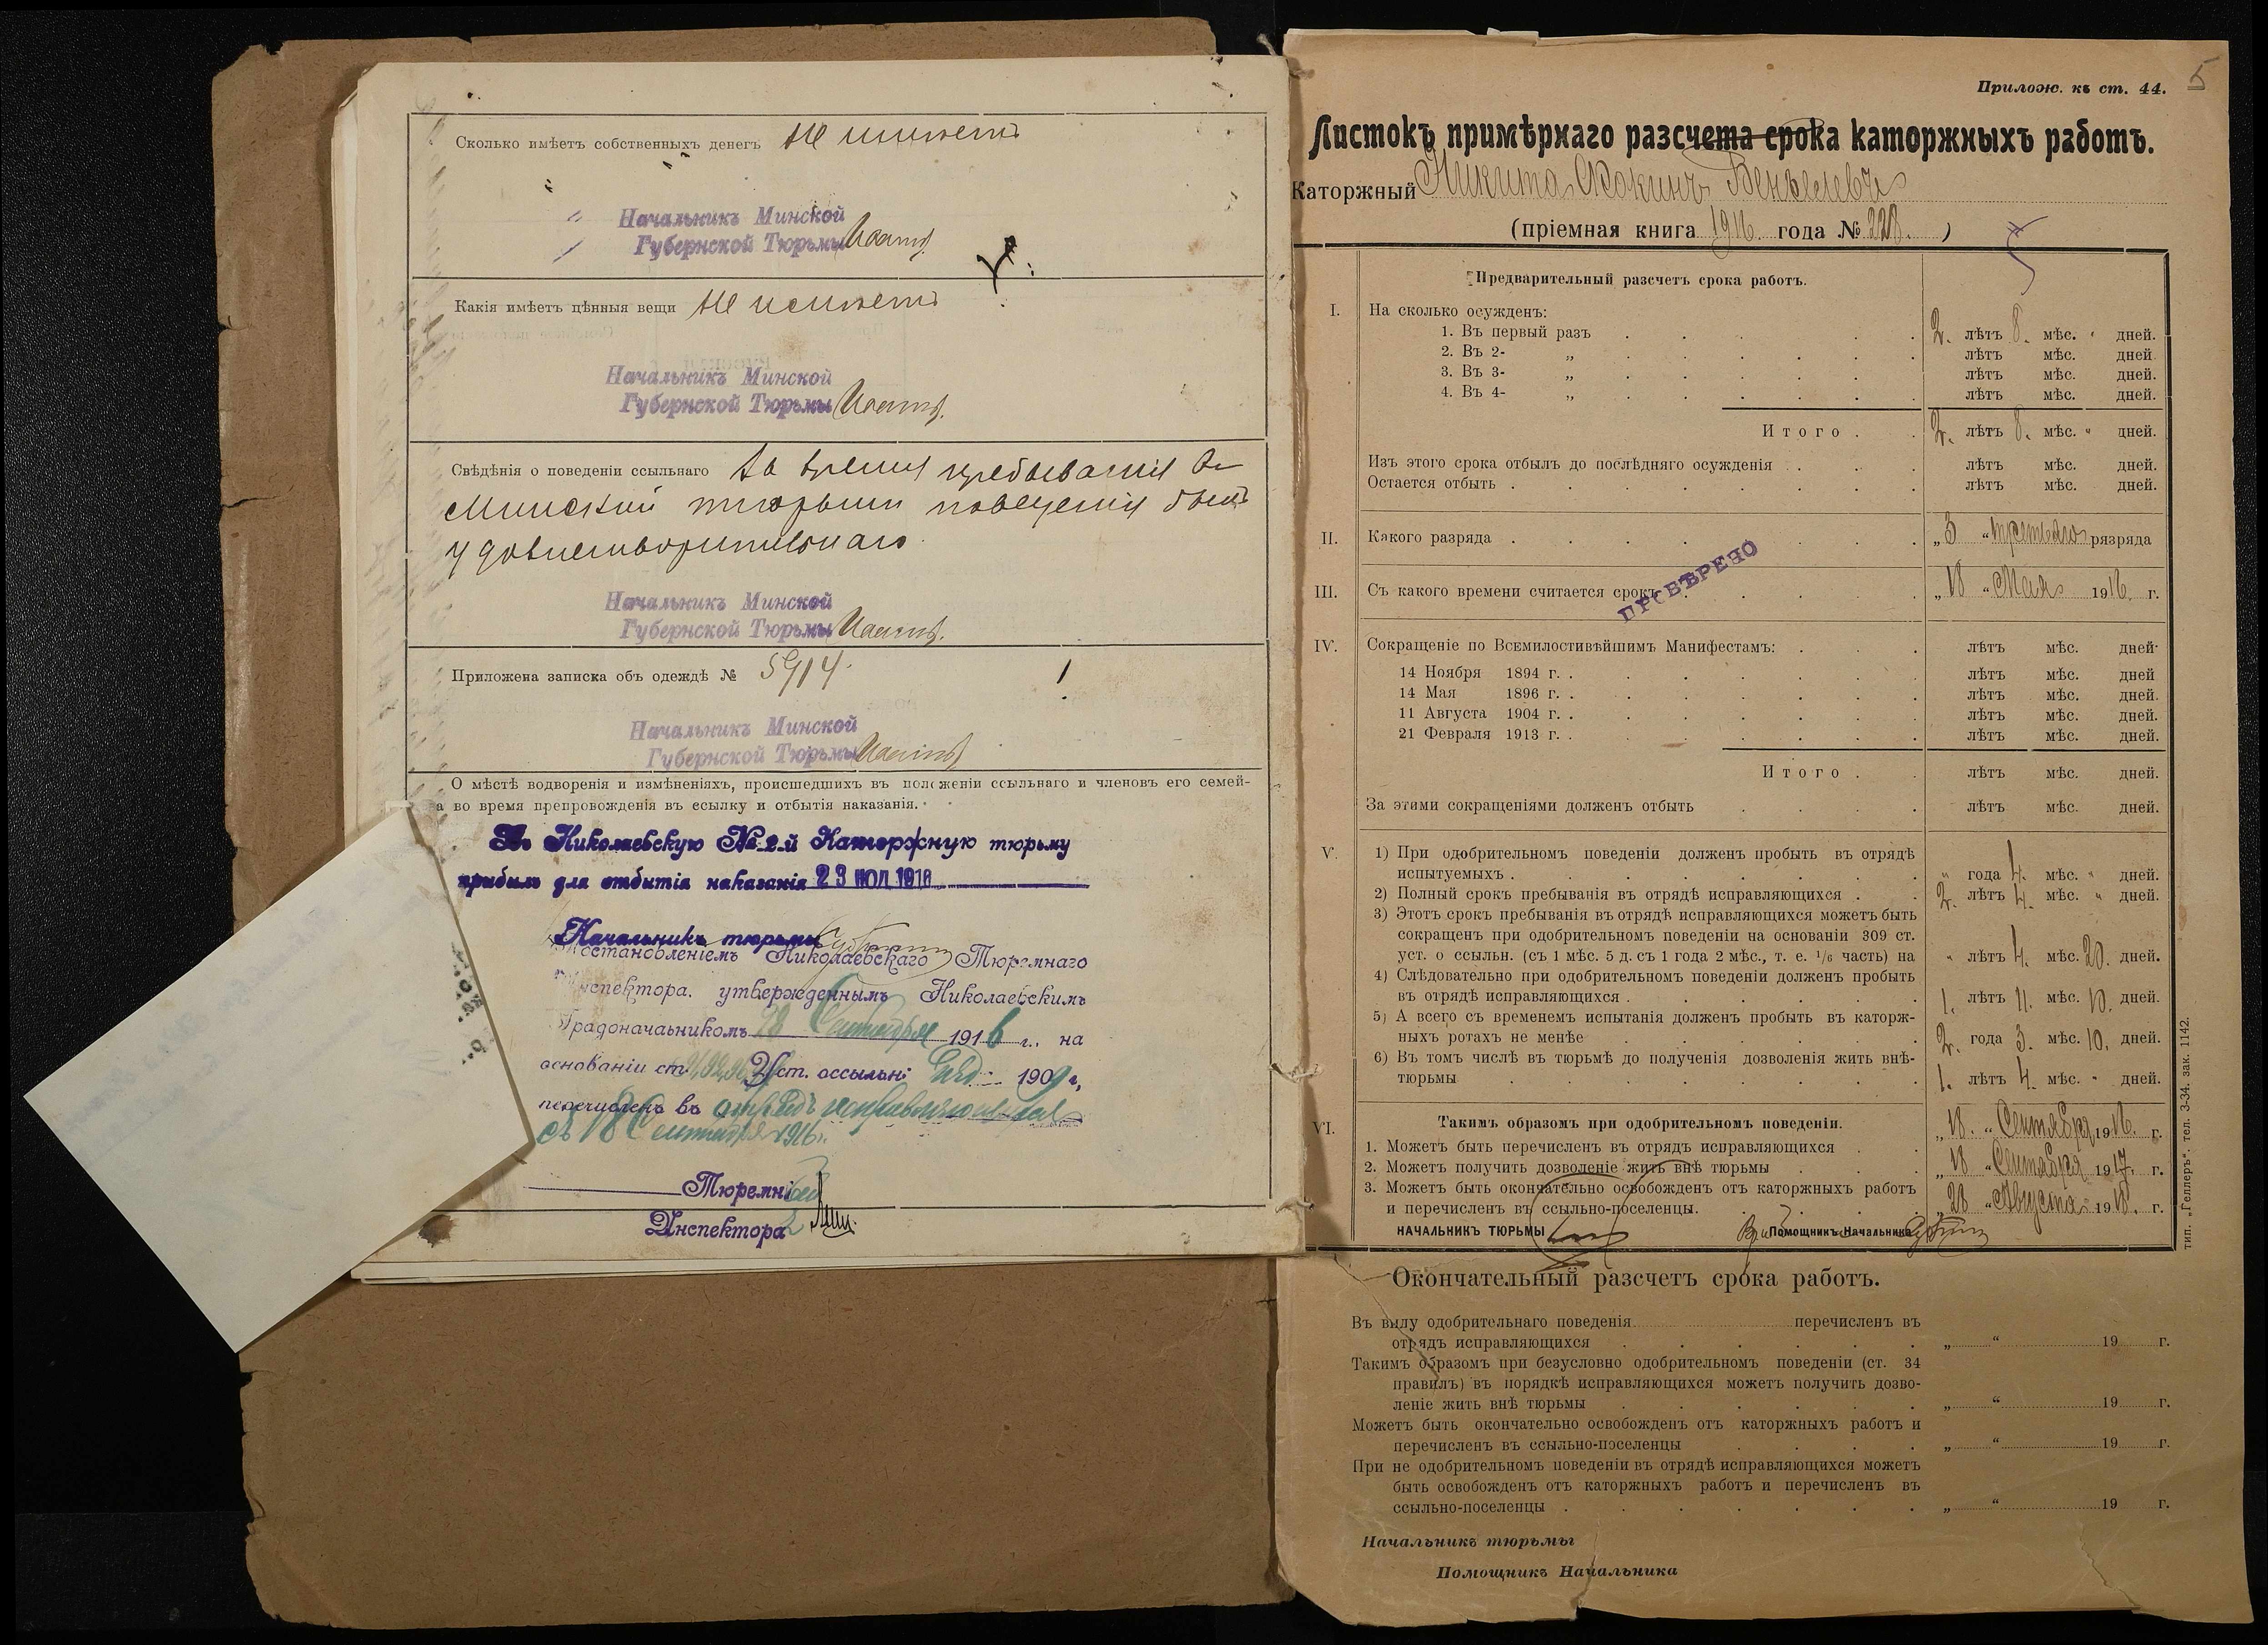 Сколько имѣетъ собственныхъ денегъ не имѣетъ
Начальникъ Минской
Губернской Тюрьмы
Какія имѣетъ цѣнныя вещи не имѣетъ
Начальникъ Минской
Губернской Тюрьмы
Свѣдѣнія о поведеніи ссыльнаго За время пребыванія въ
Минской тюрьмѣ поведенія былъ
удовлетворительнаго
Начальникъ Минской
Губернской Тюрьмы
Приложена записка объ одеждѣ № 5914.
Начальникъ Минской
Губернской Тюрьмы
О мѣстѣ водворенія и измѣненіяхъ, происшедшихъ въ положеніи ссыльнаго и членовъ его семей-
а во время препровожденія въ ссылку и отбытія наказанія.
Въ Николаевскую № 2-й Каторжную тюрьму
прибылъ для отбытія наказанія 23 ІЮЛ 1916
Начальникъ тюрьмы
Постановленіемъ Николаевскаго Тюремнаго
Инспектора, утвержденнымъ Николаевскимъ
Градоначальникомъ 28 Сентября 1916 г., на
основаніи ст. Уст. о ссыльн. изд. 1909 г.,
перечисленъ въ отрядъ исправляющихся
съ 18 Сентября 1916 г.
Тюремн
Инспектора
5
Прилож. къ ст. 44.
Листокъ примѣрнаго разсчета срока каторжныхъ работъ.
Каторжный Никита
(пріемная книга 1916 года № 228. )
Предварительный разсчетъ срока работъ.
I. На сколько осужденъ:
1. Въ первый разъ 2. лѣтъ 8. мѣс. " дней.
2. Въ 2- „ лѣтъ мѣс. дней.
3. Въ 3- „ лѣтъ мѣс. дней.
4. Въ 4- „ лѣтъ мѣс. дней.
Итого . 2. лѣтъ 8. мѣс. " дней.
Изъ этого срока отбылъ до послѣдняго осужденія лѣтъ мѣс. дней.
Остается отбыть . лѣтъ мѣс. дней.
II. Какого разряда . „3 “ третьяго рязряда
ПРОВѢРЕНО
III. Съ какого времени считается срокъ „18 “ Мая 1916. г.
IV. Сокращеніе по Всемилостивѣйшимъ Манифестамъ: лѣтъ мѣс. дней.
14 Ноября 1894 г. . лѣтъ мѣс. дней
14 Мая 1896 г. . лѣтъ мѣс. дней.
11 Августа 1904 г. . лѣтъ мѣс. дней.
21 Февраля 1913 г. . лѣтъ мѣс. дней.
Итого . лѣтъ мѣс. дней.
За этими сокращеніями долженъ отбыть лѣтъ мѣс. дней.
V. 1) При одобрительномъ поведеніи долженъ пробыть въ отрядѣ
испытуемыхъ . " года 4. мѣс. " дней.
2) Полный срокъ пребыванія въ отрядѣ исправляющихся . 2. лѣтъ 4. мѣс. " дней.
3) Этотъ срокъ пребыванія въ отрядѣ исправляющихся можетъ быть
сокращенъ при одобрительномъ поведеніи на основаніи 309 ст.
уст. о ссыльн. (съ 1 мѣс. 5 д. съ 1 года 2 мѣс., т. е. 1/6 часть) на " лѣтъ 4. мѣс. 20. дней.
4) Слѣдовательно при одобрительномъ поведеніи долженъ пробыть
въ отрядѣ исправляющихся . 1. лѣтъ 11. мѣс. 10. дней.
5) А всего съ временемъ испытанія долженъ пробыть въ каторж-
ныхъ ротахъ не менѣе 2. года 3. мѣс. 10. дней.
6) Въ томъ числѣ въ тюрьмѣ до полученія дозволенія жить внѣ-
тюрьмы 1. лѣтъ 4. мѣс. " дней.
VI. Такимъ образомъ при одобрительномъ поведеніи.
1. Можетъ быть перечисленъ въ отрядъ исправляющихся „18. “ Сентября 1916. г.
2. Можетъ получить дозволеніе жить внѣ тюрьмы „18 “ Сентября 1917. г.
3. Можетъ быть окончательно освобожденъ отъ каторжныхъ работъ
и перечисленъ въ ссыльно-поселенцы. „28 “ Августа 1918. г.
НАЧАЛЬНИКЪ ТЮРЬМЫ Помощникъ Начальника
тип. „Геллеръ“. тел. 3-34. зак. 1142.
Окончательный разсчетъ срока работъ.
Въ виду одобрительнаго поведенія перечисленъ въ
отрядъ исправляющихся „ “ 19 г.
Такимъ образомъ при безусловно одобрительномъ поведеніи (ст. 34
правилъ) въ порядкѣ исправляющихся можетъ получить дозво-
леніе жить внѣ тюрьмы „ “ 19 г.
Можетъ быть окончательно освобожденъ отъ каторжныхъ работъ и
перечисленъ въ ссыльно-поселенцы „ “ 19 г.
При не одобрительномъ поведеніи въ отрядѣ исправляющихся можетъ
быть освобожденъ отъ каторжныхъ работъ и перечисленъ въ
ссыльно-поселенцы . „ “ 19 г.
Начальникъ тюрьмы
Помощникъ Начальника